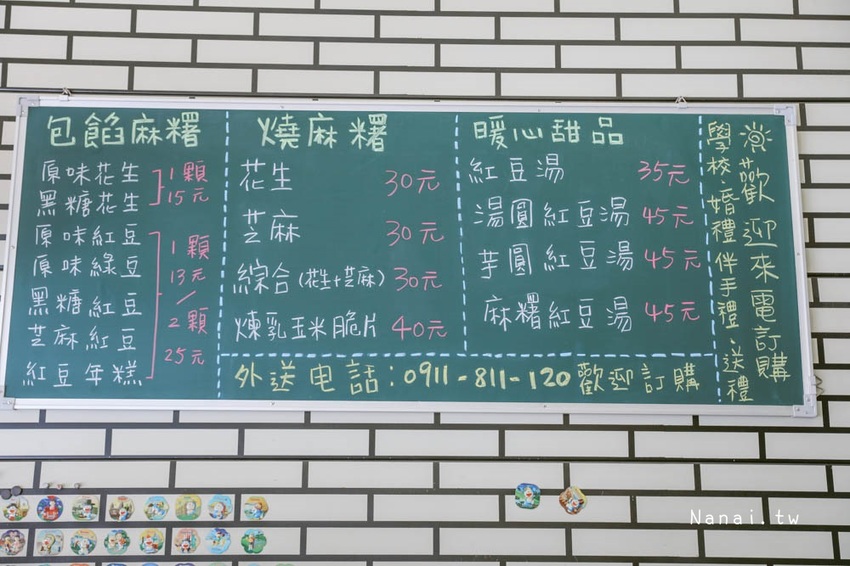 包餡麻糬
原味花生
黑糖花生
1顆
15元
原味紅豆
原味綠豆
黑糖紅豆
芝麻紅豆
紅豆年糕
1顆
13元
/
2顆
25元
燒麻糬
花生 30元
芝麻 30元
綜合(花生+芝麻) 30元
煉乳玉米脆片 40元
暖心甜品
紅豆湯 35元
湯圓紅豆湯 45元
芋圓紅豆湯 45元
麻糬紅豆湯 45元
外送电話:0911-811-120歡迎訂購
歡迎來電訂購
學校·婚禮伴手禮·送禮
Nanai.tw